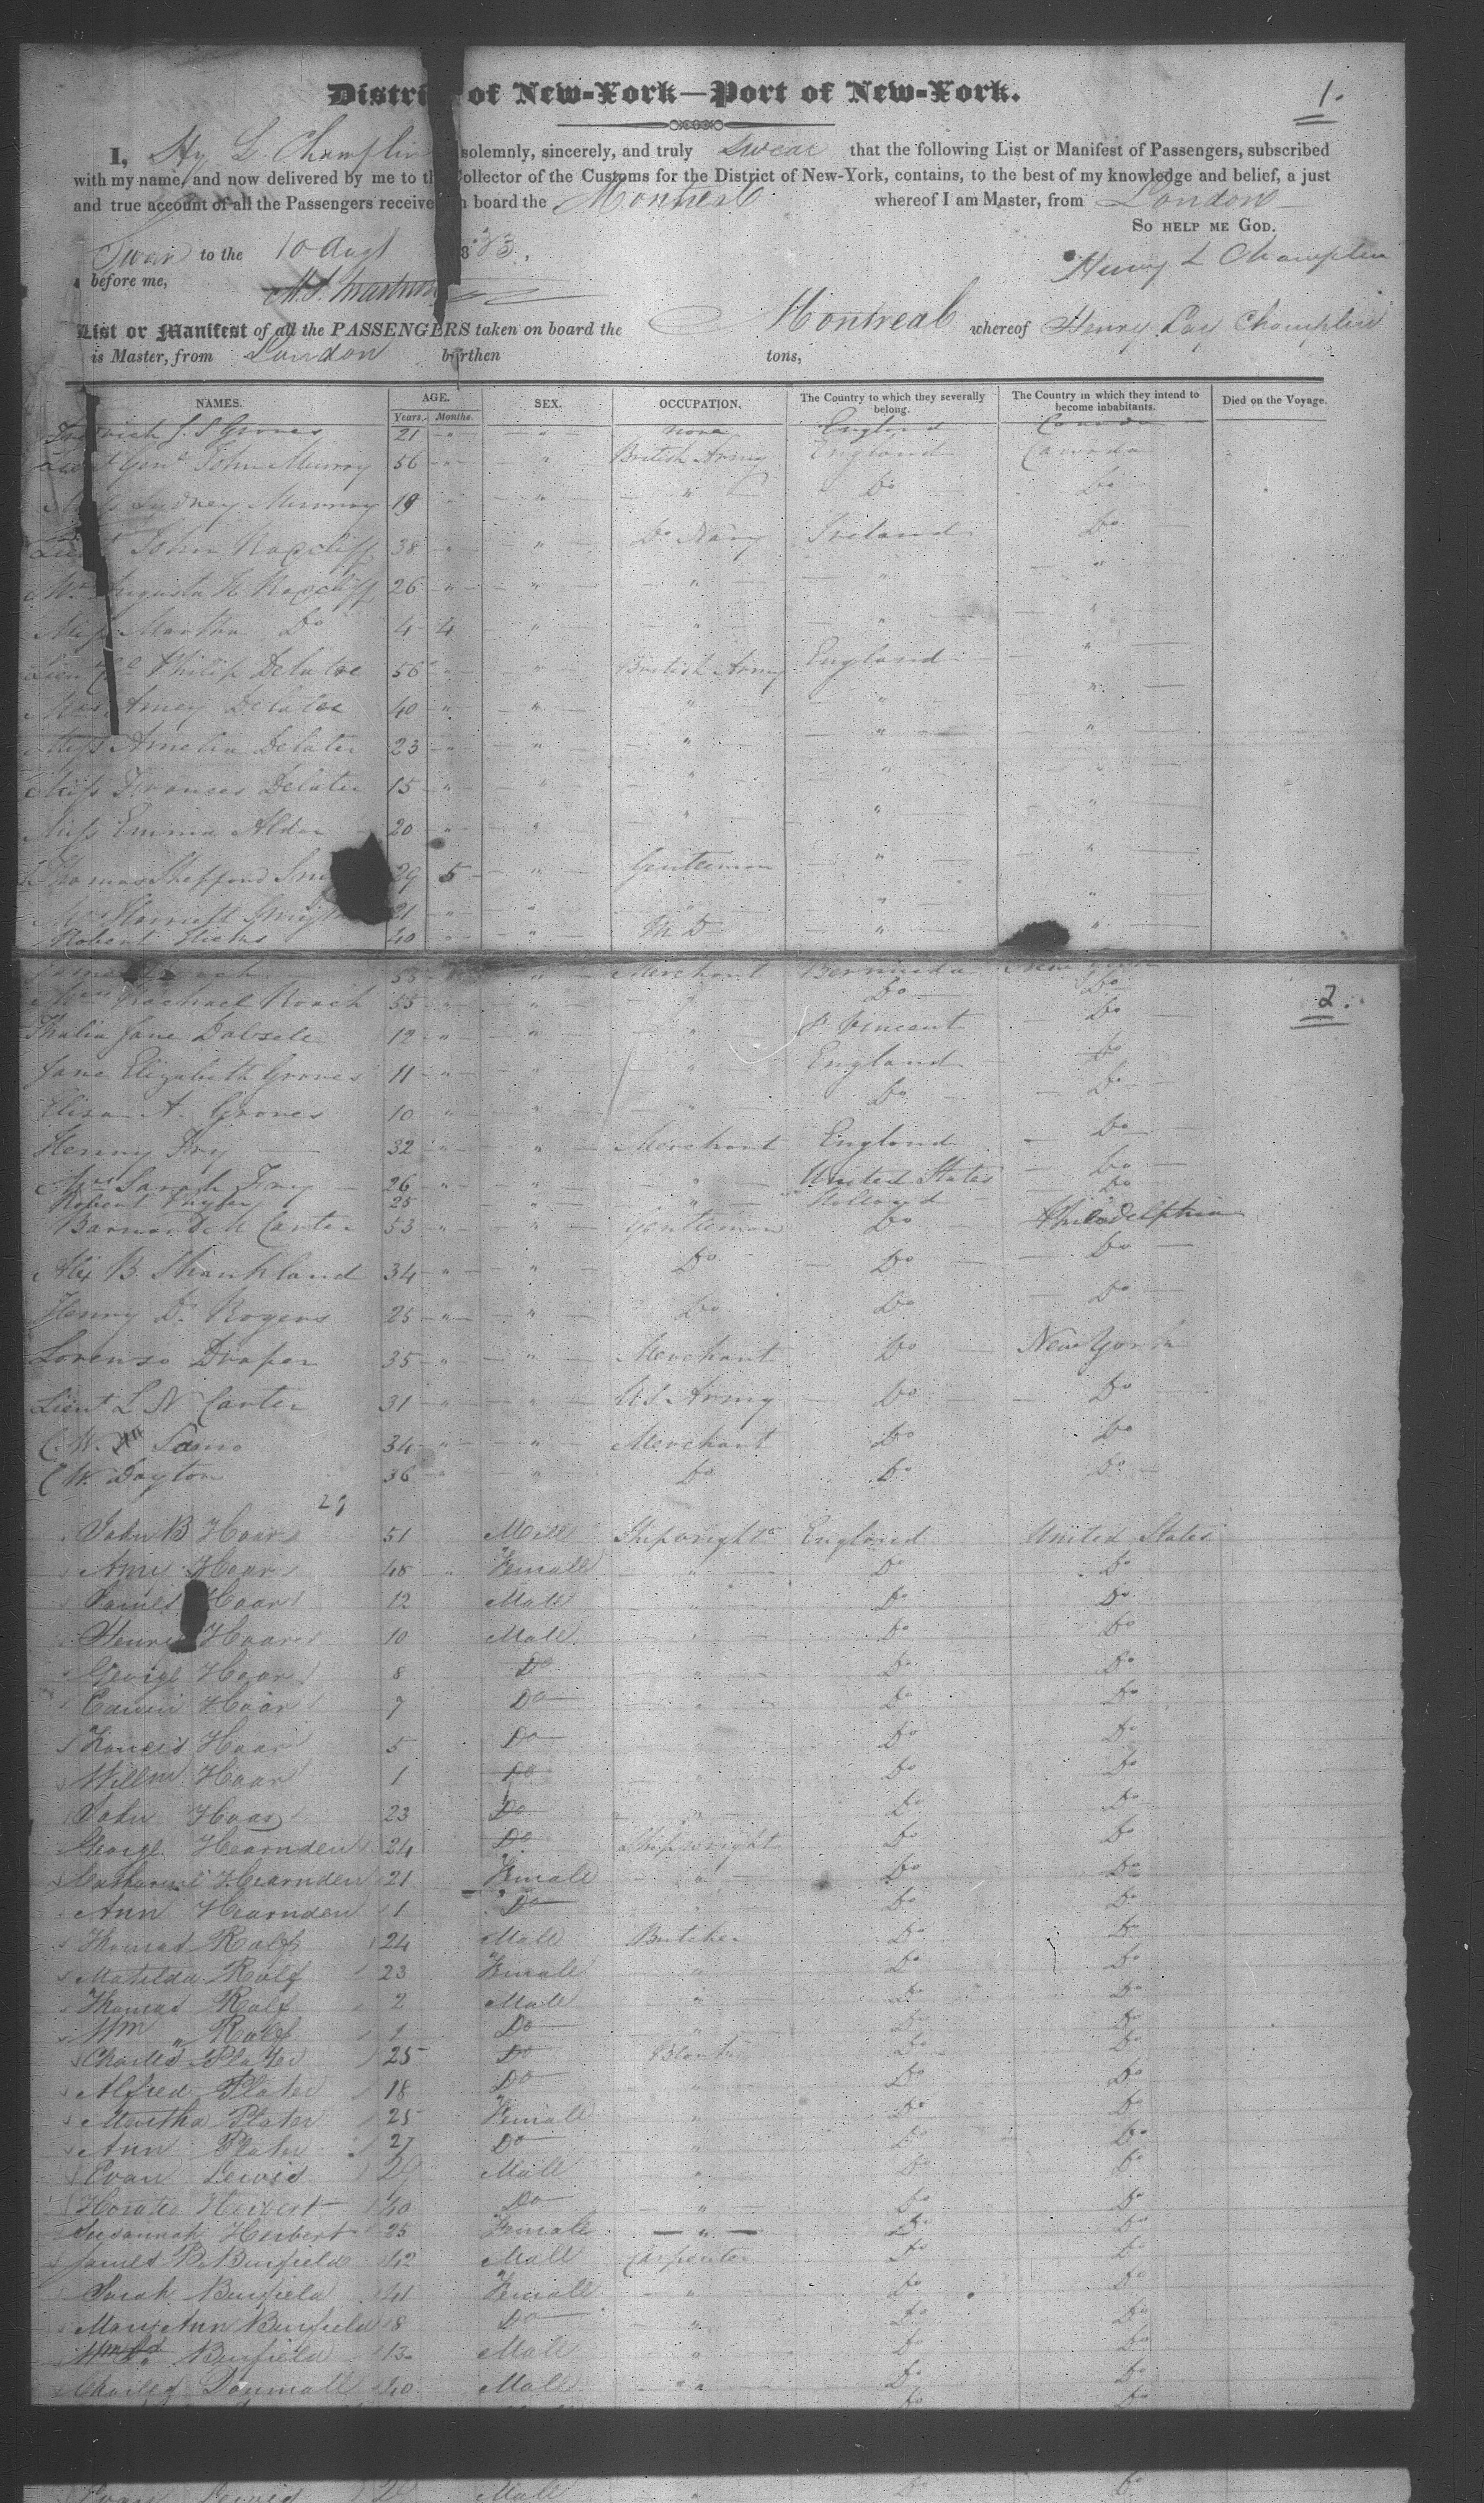 District of New-York—Port of New-York.
1.
I, Hy L. Champlin solemnly, sincerely, and truly swear that the following List or Manifest of Passengers, subscribed
with my name, and now delivered by me to the Collector of the Customs for the District of New-York, contains, to the best of my knowledge and belief, a just
and true account of all the Passengers received on board the Montreal whereof I am Master, from London
So help me God.
Sworn to the 10 Augt 1833,
before me, Henry L Champlin
List or Manifest of all the PASSENGERS taken on board the Montreal whereof Henry Lay Champlin
is Master, from London burthen tons,
NAMES. AGE. Years. Months. SEX. OCCUPATION. The Country to which they severally belong. The Country in which they intend to become inhabitants. Died on the Voyage.
Groves 21 " " None England Canada
Genl John Murray 56 " " British Army England Canada
Miss Sydney Murray 19 " " " Do Do
Lieut John 38 " " Do Navy Ireland Do
Mrs Augusta H 26 " " " " "
Miss Martha Do 4 4 " " " "
Lieut Col Philip Delatre 56 " " British Army England "
Mrs Amey Delatre 40 " " " " "
Miss Amelia Delatre 23 " " " " "
Miss Frances Delatre 15 " " " " "
Miss Emma Alder 20 " " " " "
Thomas Shepford 29 5 " Gentleman " "
Mrs Harriett 21 " " " " "
Robert 40 " " M D " "
Roach 55 " " Merchant Bermuda New York
2.
Mrs Rachael Roach 55 " " " Do Do
Thalia Jane Dalzele 12 " " " St Vincent Do
Jane Elizabeth Groves 11 " " " England Do
Eliza A. Groves 10 " " " Do Do
Henry Fry 32 " " Merchant England Do
Mrs Sarah Fry 26 " " " United States Do
Robert 25 " " " Holland Do
Carter 53 " " Gentleman Do Philadelphia
Alex B. Shankland 34 " " Do Do Do
Henry D. Rogers 25 " " Do Do Do
Lorenzo Draper 35 " " Merchant Do New York
Lieut L N Carter 31 " " U.S. Army Do Do
C. W. 34 " " Merchant Do Do
C W. Dayton 36 " " Do Do Do
29
John B Hoar 51 Male Shipwright England United States
Amy Hoar 48 " Female " Do Do
James Hoar 12 Male " Do Do
Henry Hoar 10 Male " Do Do
George Hoar 8 Do " Do Do
Edwin Hoar 7 Do " Do Do
Francis Hoar 5 Do Do Do
Willm Hoar 1 Do " Do Do
John Hoar 23 Do " Do Do
George Hearnden 24 Do Shipwright Do Do
Catharine Hearnden 21 Female " Do Do
Ann Hearnden 1 Do " Do Do
Thomas Ralf 24 Male Butcher Do Do
Matilda Ralf 23 Female " Do Do
Thomas Ralf 2 Male " Do Do
Wm " Ralf 1 Do " Do Do
Charles Plater 25 Do Do Do
Alfred Plater 18 Do " Do Do
Martha Plater 25 Female " Do Do
Ann Plater 27 Do " Do Do
Evan Lewis 29 Male " Do Do
Horatio Herbert 40 Do " Do Do
Susannah Herbert 25 Female " Do Do
James B Burfield 42 Male Carpenter Do Do
Sarah Burfield 41 Female " Do Do
Mary Ann Burfield 8 Do " Do Do
Burfield 13 Male " Do Do
Charles 40 Male " Do Do
Do Do
Evan Lewis 29 Male " Do Do